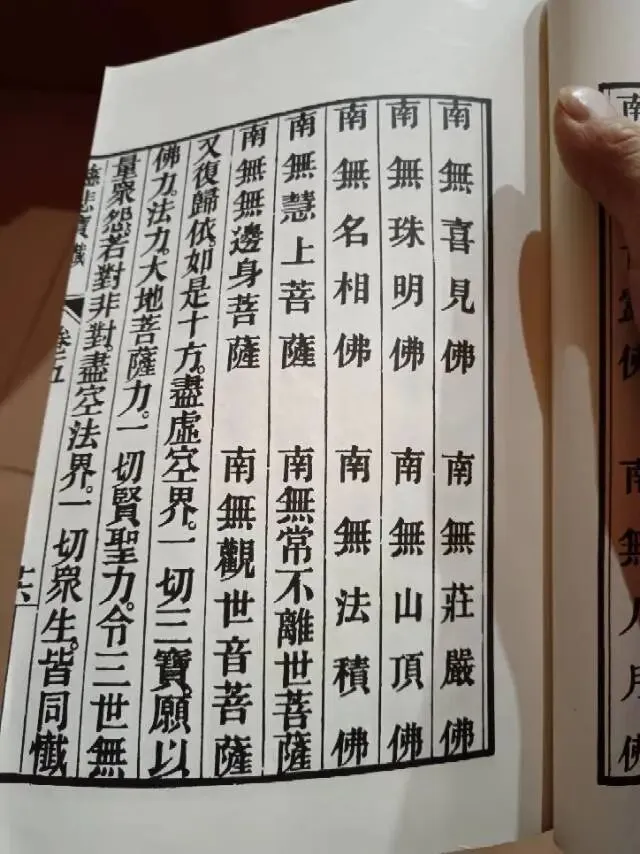 南無喜見佛　南無莊嚴佛
南無珠明佛　南無山頂佛
南無名相佛　南無法積佛
南無慧上菩薩　南無常不離世菩薩
南無無邊身菩薩　南無觀世音菩薩
又復歸依。如是十方。盡虛空界。一切三寶。願以
佛力。法力。大地菩薩力。一切賢聖力。令三世無
量衆怨。若對非對。盡空法界。一切衆生。皆同懺
慈悲寶懺　卷五　十六